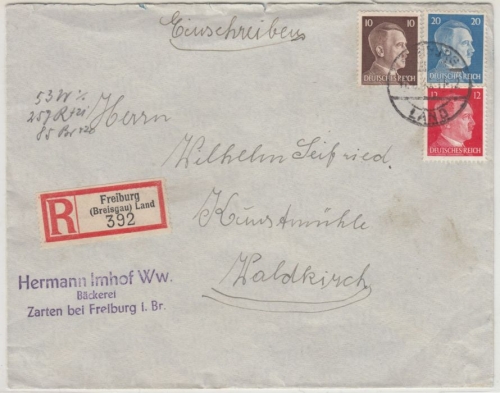 Einschreiben
10 10
DEUTSCHES REICH
20 20
DEUTSCHES REICH
12
DEUTSCHES REICH
LAND
Herrn
Wilhelm Seifried.
Kunstmühle
Waldkirch
R
Freiburg
(Breisgau) Land
392
Hermann Imhof Ww.
Bäckerei
Zarten bei Freiburg i. Br.